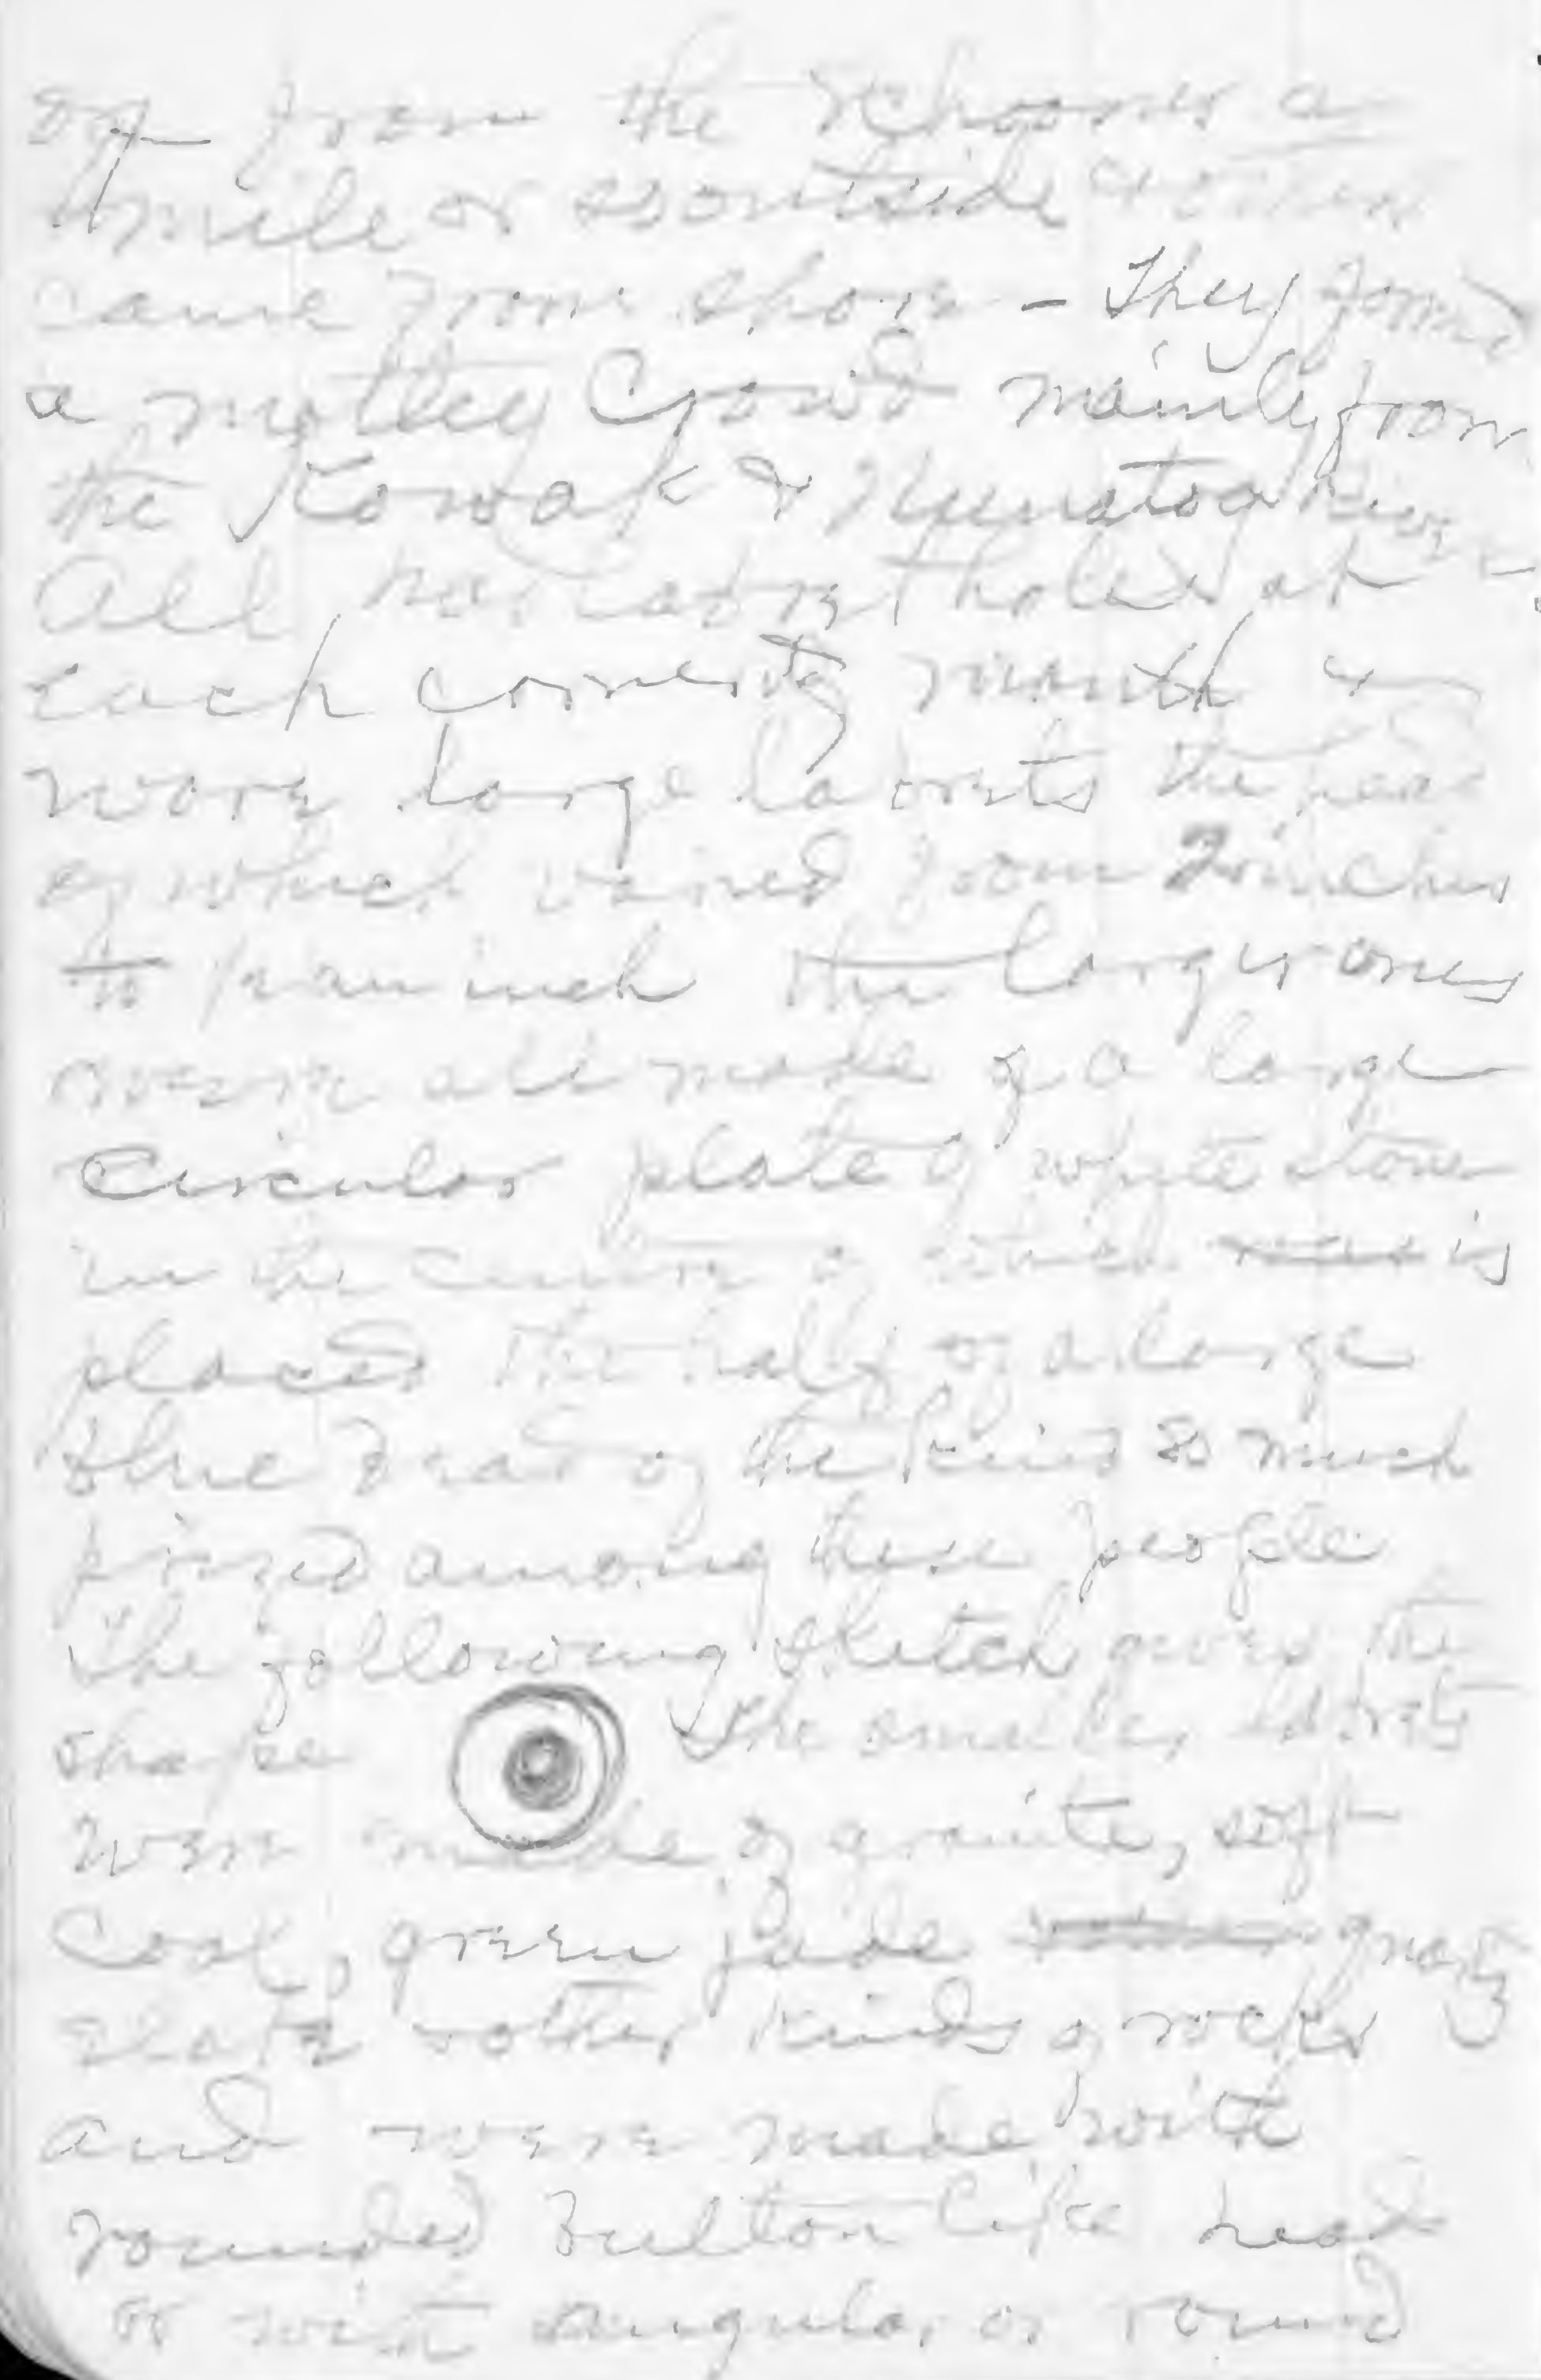 off from the schooner a
mile or so outside & others
came from shore - They formed
a motley crowd mainly from
the Kowak & Nunatog Rivers -
All had holes at
each corner of mouth &
wore large labrets the head
of which varied from 2 inches
to an inch the larger ones
were all made of a large
circular plate of white stone
in the center of which is
placed the half of a large
blue bead of the kind so much
prized among these people
The following sketch gives the
shape The smaller labrets
were made of granite, soft
coal, green jade quartz
slate & other kinds of rocks
and were made with
rounded button like head
or with angular or round